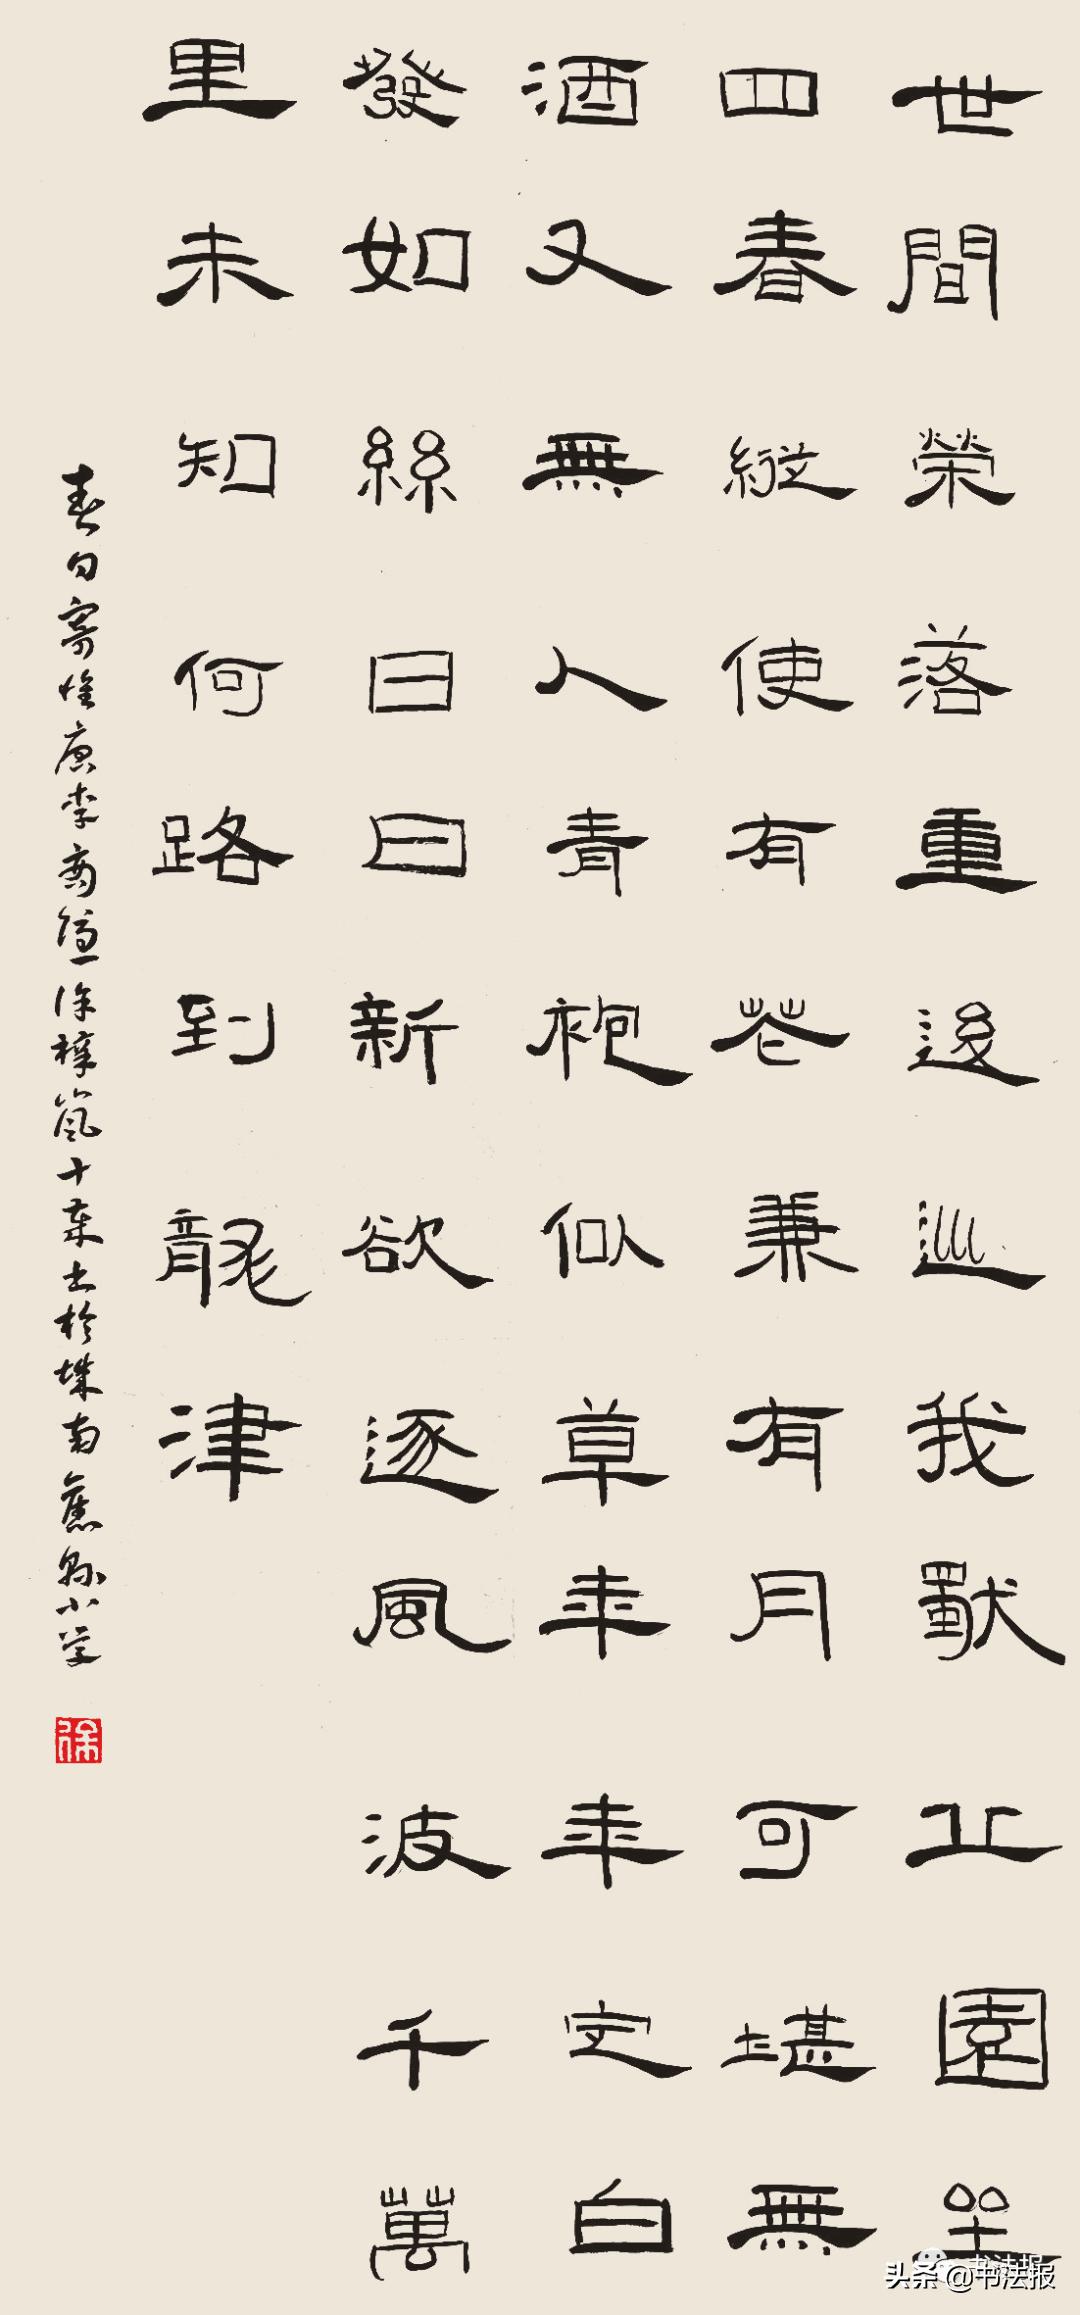 世間榮落重逡巡我獸止園坐
四春縱使有花兼有月可堪無
酒又無人青袍似草年年定白
發如絲日日新欲逐風波千萬
里未知何路到龍津
春日寄懷唐李商隱徐梓嵐十來歲書於株
南蕉縣小學
徐
头条@书法报
书法报